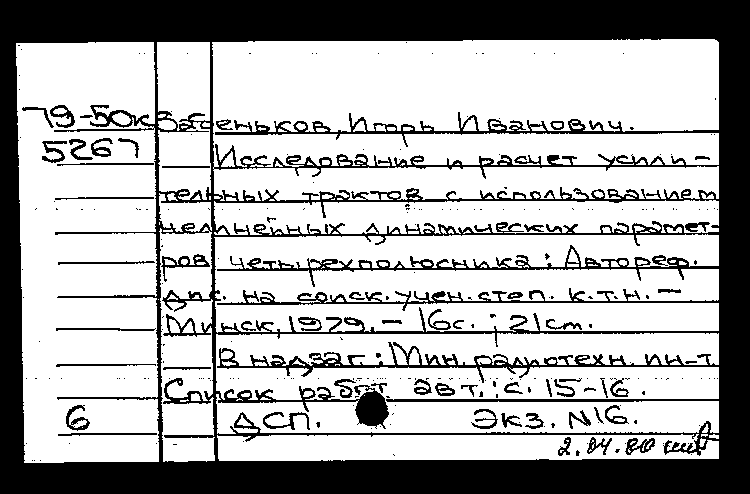 79-50к Забеньков, Игорь Иванович.
5267 Исследование и расчет усили-
тельных трактов с использованием
нелинейных динамических парамет-
ров четырехполюсника: Автореф.
дис. на соиск. учен. степ. к.т.н. —
Минск, 1979. — 16с. ; 21см.
В надзаг.: Мин. радиотехн. ин-т.
Список работ авт.: с. 15-16.
6 ДСП. Экз. N16.
2.04.80